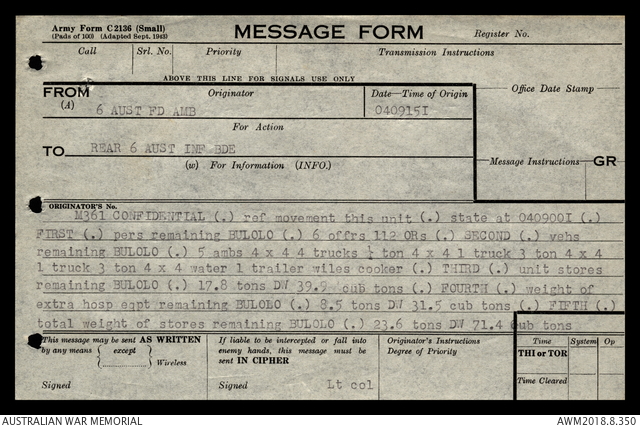 Army Form C 2136 (Small)
(Pads of 100) (Adapted Sept. 1943)
MESSAGE FORM
Register No.
Call Srl. No. Priority Transmission Instructions
ABOVE THIS LINE FOR SIGNALS USE ONLY
FROM Originator Date—Time of Origin Office Date Stamp
(A) 6 AUST FD AMB 040915I
For Action
TO REAR 6 AUST INF BDE
(w) For Information (INFO.) Message Instructions GR
ORIGINATOR'S No.
M361 CONFIDENTIAL (.) ref movement this unit (.) state at 040900I (.)
FIRST (.) pers remaining BULOLO (.) 6 offrs 112 ORs (.) SECOND (.) vehs
remaining BULOLO (.) 5 ambs 4 x 4 4 trucks ½ ton 4 x 4 1 truck 3 ton 4 x 4
1 truck 3 ton 4 x 4 water 1 trailer wiles cooker (.) THIRD (.) unit stores
remaining BULOLO (.) 17.8 tons DW 39.9 cub tons (.) FOURTH (.) weight of
extra hosp eqpt remaining BULOLO (.) 8.5 tons DW 31.5 cub tons (.) FIFTH (.)
total weight of stores remaining BULOLO (.) 23.6 tons DW 71.4 cub tons
This message may be sent AS WRITTEN
by any means ( except )
Wireless
Signed
If liable to be intercepted or fall into
enemy hands, this message must be
sent IN CIPHER
Signed Lt col
Originator's Instructions
Degree of Priority
Time System Op
THI or TOR
Time Cleared
AUSTRALIAN WAR MEMORIAL AWM2018.8.350